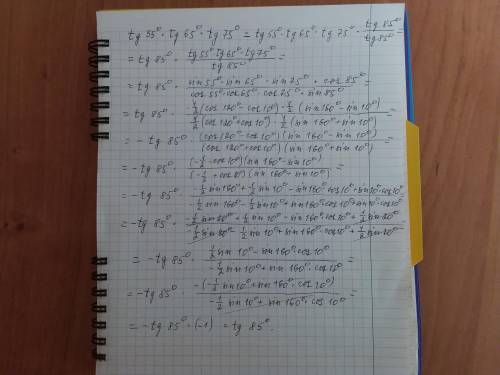 tg 55° · tg 65° · tg 75° = tg 55° · tg 65° · tg 75° · tg 85° / tg 85° =
= tg 85° · (tg 55° tg 65° · tg 75°) / (tg 85°) =
= tg 85° · (sin 55° · sin 65° · sin 75° · cos 85°) / (cos 55° · cos 65° · cos 75° · sin 85°) =
= tg 85° · (-1/2 (cos 120° - cos 10°) · 1/2 (sin 160° - sin 10°)) / (1/2 (cos 120° + cos 10°) · 1/2 (sin 160° + sin 10°)) =
= - tg 85° · ((cos 120° - cos 10°) (sin 160° - sin 10°)) / ((cos 120° + cos 10°) (sin 160° + sin 10°)) =
= - tg 85° · ((-1/2 - cos 10°) (sin 160° - sin 10°)) / ((-1/2 + cos 10°) (sin 160° + sin 10°)) =
= - tg 85° · (-1/2 sin 160° + 1/2 sin 10° - sin 160° · cos 10° + sin 10° · cos 10°) / (-1/2 sin 160° - 1/2 sin 10° + sin 160° cos 10° + sin 10° cos 10°) =
= - tg 85° · (-1/2 sin 20° + 1/2 sin 10° - sin 160° · cos 10° + 1/2 sin 20°) / (-1/2 sin 20° - 1/2 sin 10° + sin 160° · cos 10° + 1/2 sin 20°) =
= - tg 85° · (1/2 sin 10° - sin 160° · cos 10°) / (-1/2 sin 10° + sin 160° · cos 10°) =
= - tg 85° · (-(-1/2 sin 10° + sin 160° · cos 10°)) / (-1/2 sin 10° + sin 160° · cos 10°) =
= - tg 85° · (-1) = tg 85°.